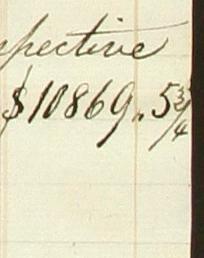 spective
$10869.53¾